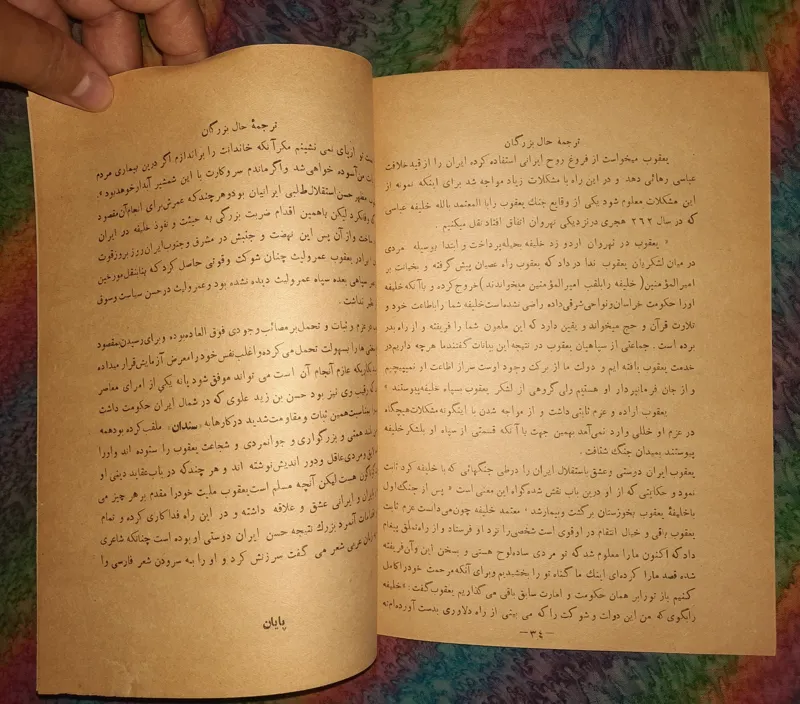 ترجمهٔ حال بزرگان
یعقوب میخواست از فروغ روح ایرانی استفاده کرده ایران را از قید خلافت
عباسی رهائی دهد و در این راه با مشکلات زیاد مواجه شد برای اینکه نمونه از
این مشکلات معلوم شود یکی از وقایع جنك یعقوب را با المعتمد بالله خلیفه عباسی
که در سال ۲۶۲ هجری در نزدیکی نهروان اتفاق افتاد نقل میکنیم .
« یعقوب در نهروان اردو زد خلیفه بحیله پرداخت و ابتدا بوسیله مردی
در میان لشکریان یعقوب ندا در داد که یعقوب راه عصیان پیش گرفته و بخیانت بر
امیرالمؤمنین ( خلیفه را بلقب امیرالمؤمنین میخواندند ) خروج کرده و با آنکه خلیفه
اورا حکومت خراسان و نواحی شرقی داده راضی نشده است خلیفه شما را باطاعت خود و
تلاوت قرآن و حج میخواند و یقین دارد که این ملعون شما را فریفته و از راه بدر
برده است . جماعتی از سپاهیان یعقوب در نتیجه این بیانات گفتند ما هرچه داریم در
خدمت یعقوب یافته ایم و دولت ما از برکت وجود اوست سر از اطاعت او نمیپیچیم
و از جان فرمانبردار او هستیم ولی گروهی از لشکر یعقوب بسپاه خلیفه پیوستند »
یعقوب اراده و عزم ثابتی داشت و از مواجه شدن با اینگونه مشکلات هیچگاه
در عزم او خللی وارد نمی‌آمد بهمین جهت با آنکه قسمتی از سپاه او بلشکر خلیفه
پیوستند بمیدان جنگ شتافت .
یعقوب ایران دوستی و عشق باستقلال ایران را در طی جنگهائی که با خلیفه کرد ثابت
نمود و حکایتی که از او درین باب نقش شده گواه این معنی است « پس از جنك اول
با خلیفهٔ یعقوب بخوزستان برگشت و بیمار شد ؛ معتمد خلیفه چون می‌دانست عزم ثابت
یعقوب باقی و خیال انتقام در او قوی است شخصی را نزد او فرستاد و از راه تملق پیغام
داد که اکنون مارا معلوم شد که تو مردی ساده‌لوح هستی و بسخن این و آن فریفته
شده قصد مارا کرده‌ای اینك ما گناه تو را بخشیدیم و برای آنکه مرحمت خود را کامل
کنیم باز تورا بر همان حکومت و امارت سابق باقی می گذاریم یعقوب گفت : « خلیفه
را بگوی که من این دولت و شوکت را که می بینی از راه دلاوری بدست آورده‌ام نه
—۳۴—
ترجمهٔ حال بزرگان
تو از پای نمی نشینم مگر آنکه خاندانت را براندازم اگر درین بیماری مردم
آسوده خواهی شد و اگر ماندم سر و کارت با این شمشیر آبدار خواهد بود » .
مظهر حسن استقلال طلبی ایرانیان بود و هر چند که عمرش برای انجام آن مقصود
لیکن با همین اقدام ضربت بزرگی به حیثیت و نفوذ خلیفه در ایران
ساخت و از آن پس این نهضت و جنبش در مشرق و جنوب ایران روز بروز قوت
یعقوب عمرولیث چنان شوکت و قوتی حاصل کرد که بنا بنقل مورخین
سپاهی بعده سپاه عمرولیث دیده نشده بود و عمرولیث در حسن سیاست و سوق
نظیر نداشت .
عزم و ثبات و تحمل بر مصائب وجودی فوق العاده بوده و برای رسیدن بمقصود
ها را بسهولت تحمل می کرده و اغلب نفس خود را معرض آزمایش قرار میداده
عازم انجام آن است می تواند موفق شود یا نه یکی از امرای معاصر
رقیب وی نیز بود حسن بن زید علوی که در شمال ایران حکومت داشت
بمناسبت همین ثبات و مقاومت شدید در کارها به «سندان» ملقب کرده بود همه
همتی و بزرگواری و جوانمردی و شجاعت یعقوب را ستوده اند و اورا
مردی عاقل و دور اندیش نوشته اند و هر چند که در باب عقاید دینی او
هست لیکن آنچه مسلم است یعقوب ملیت خود را مقدم بر هر چیز می
ایران و ایرانی عشق و علاقه داشته و در این راه فداکاری کرده و تمام
آنمرد بزرك نتیجه حسن ایران دوستی او بوده است چنانکه شاعری
عربی شعر می گفت سرزنش کرد و او را به سرودن شعر فارسی وا
پایان